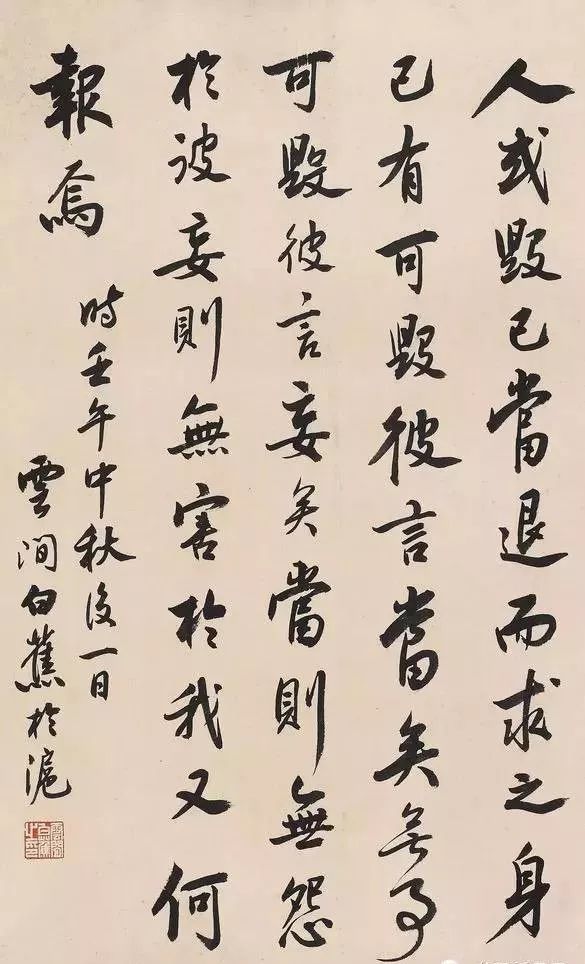 人或毀己當退而求之身
己有可毀彼言當矣無
可毀彼言妄矣當則無怨
於彼妄則無害於我又何
報焉
時壬午中秋後一日
雲間白蕉於滬